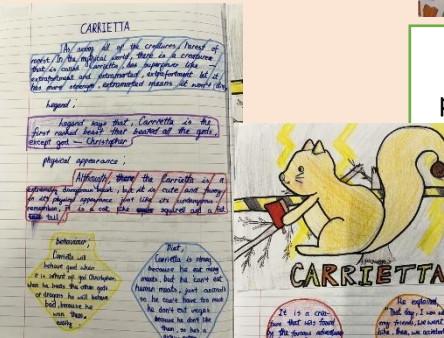 CARRIETTA
As among all of the creatures, rarest of
rarest. In the mythical world, there is a creature
that is called Carrietta, has superpower like —
extrafortment and extramorted, extrafortment let it
has more strength, extramorted means it won't die
Legend;
Legend says that, Carrietta is the
first ranked beast that beated all the gods,
except god — Christopher
physical appearance;
Although, the Carrietta is a
extremely dangerous beast, but it is cute and funny
in its physical appearance just like its
remember, it is a cat, like squirrel and a fat
tail.
behaviour;
Carrietta will
behave good when
it is infront of god Christopher,
when he beats the other gods
or dragons he will behave
bad, because he
won them
easily
Diet;
Carrietta is strong
because he eat many
meats, but he can't eat
human meats, just animals
so he can't have too much
he don't eat vegan
because he don't like
them, so he's a
CARRIETTA
It is a crea-
ture that was found
by the famous
He explained
That day, I was
my friends, we went
hike, then, we
p